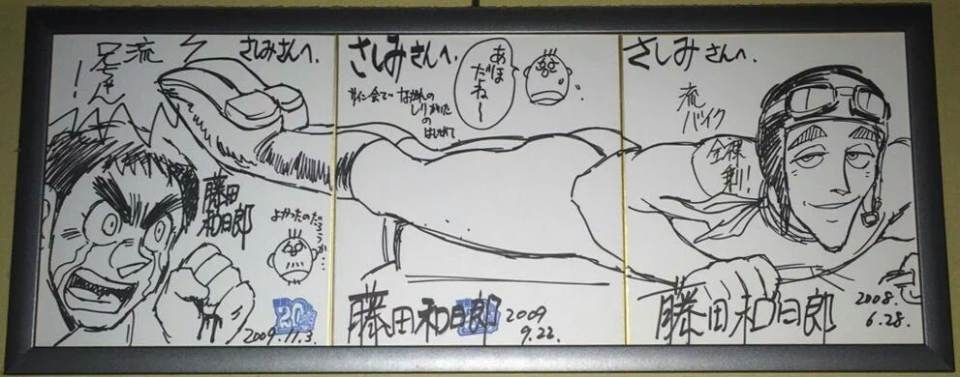 さしみさんへ。
流
兄ちゃん!
藤田
和日郎
よかったのだ
ろうか…
20
2009.11.3.
さしみさんへ。
あほ
だね〜
サイン会で…ながれの
しりかいた
の
はじめて
藤田和日郎
2009
9.22.
さしみさんへ。
流
バイク
全裸
藤田和日郎
2008.
6.28.